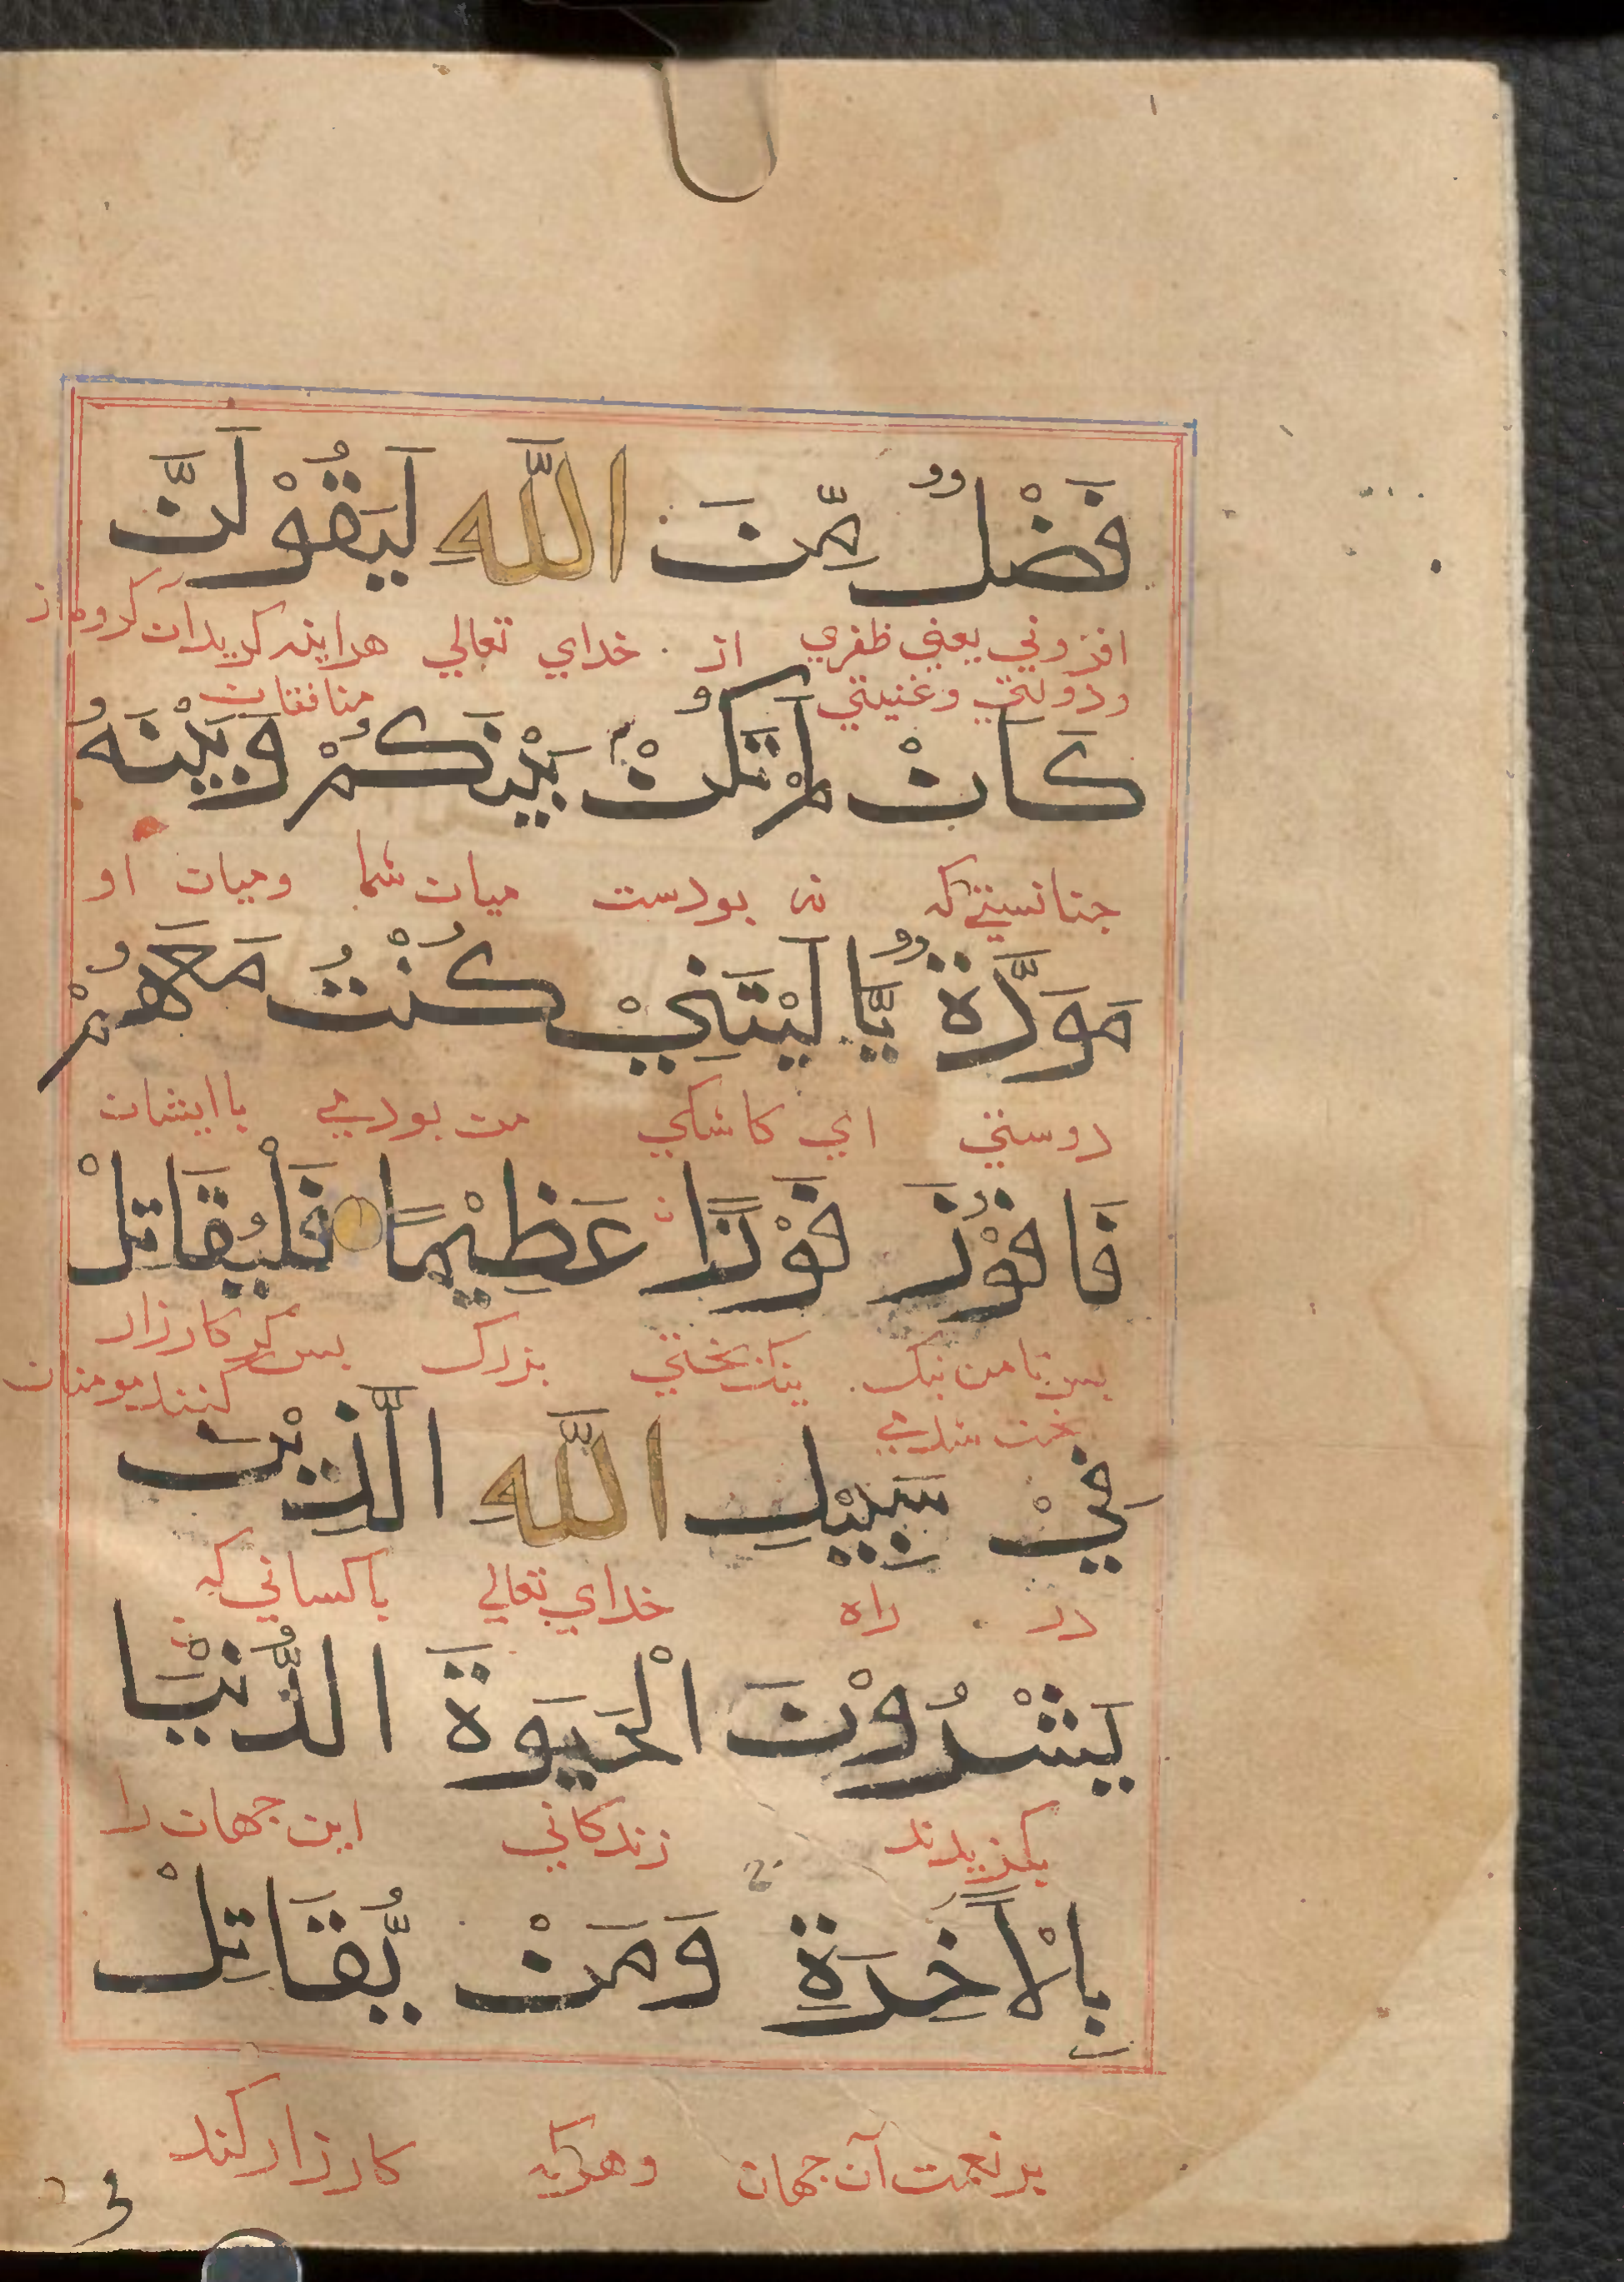 فَضْلٌ مِّنَ اللَّهِ لَيَقُوْلَنَّ
افزوني يعني ظفري از خداي تعالي هراينه كويدان كروه از
ودولتي وغنيمتي منافقان
كَانْ لَمْ تَكُنْ بَيْنَكُمْ وَبَيْنَهُ
جنانستي كه نه بودست ميان شما وميان او
مَوَدَّةٌ يَّا لَيْتَنِيْ كُنْتُ مَعَهُمْ
دوستي اي كاشكي من بودمي باايشان
فَافُوْزَ فَوْزًا عَظِيْمًا فَلْيُقَاتِلْ
بس تا من نيك نيك بختي بزرك بس كو كارزار
بخت شدمي كنند مومنان
فِيْ سَبِيْلِ اللَّهِ الَّذِيْنَ
در راه خداي تعالي باكساني كه
يَشْرُوْنَ الْحَيَوةَ الدُّنْيَا
بكزيدند زندكاني اين جهان را
بِالْآخِرَةِ وَمَنْ يُّقَاتِلْ
بر نعمت آن جهان وهركه كارزار كند